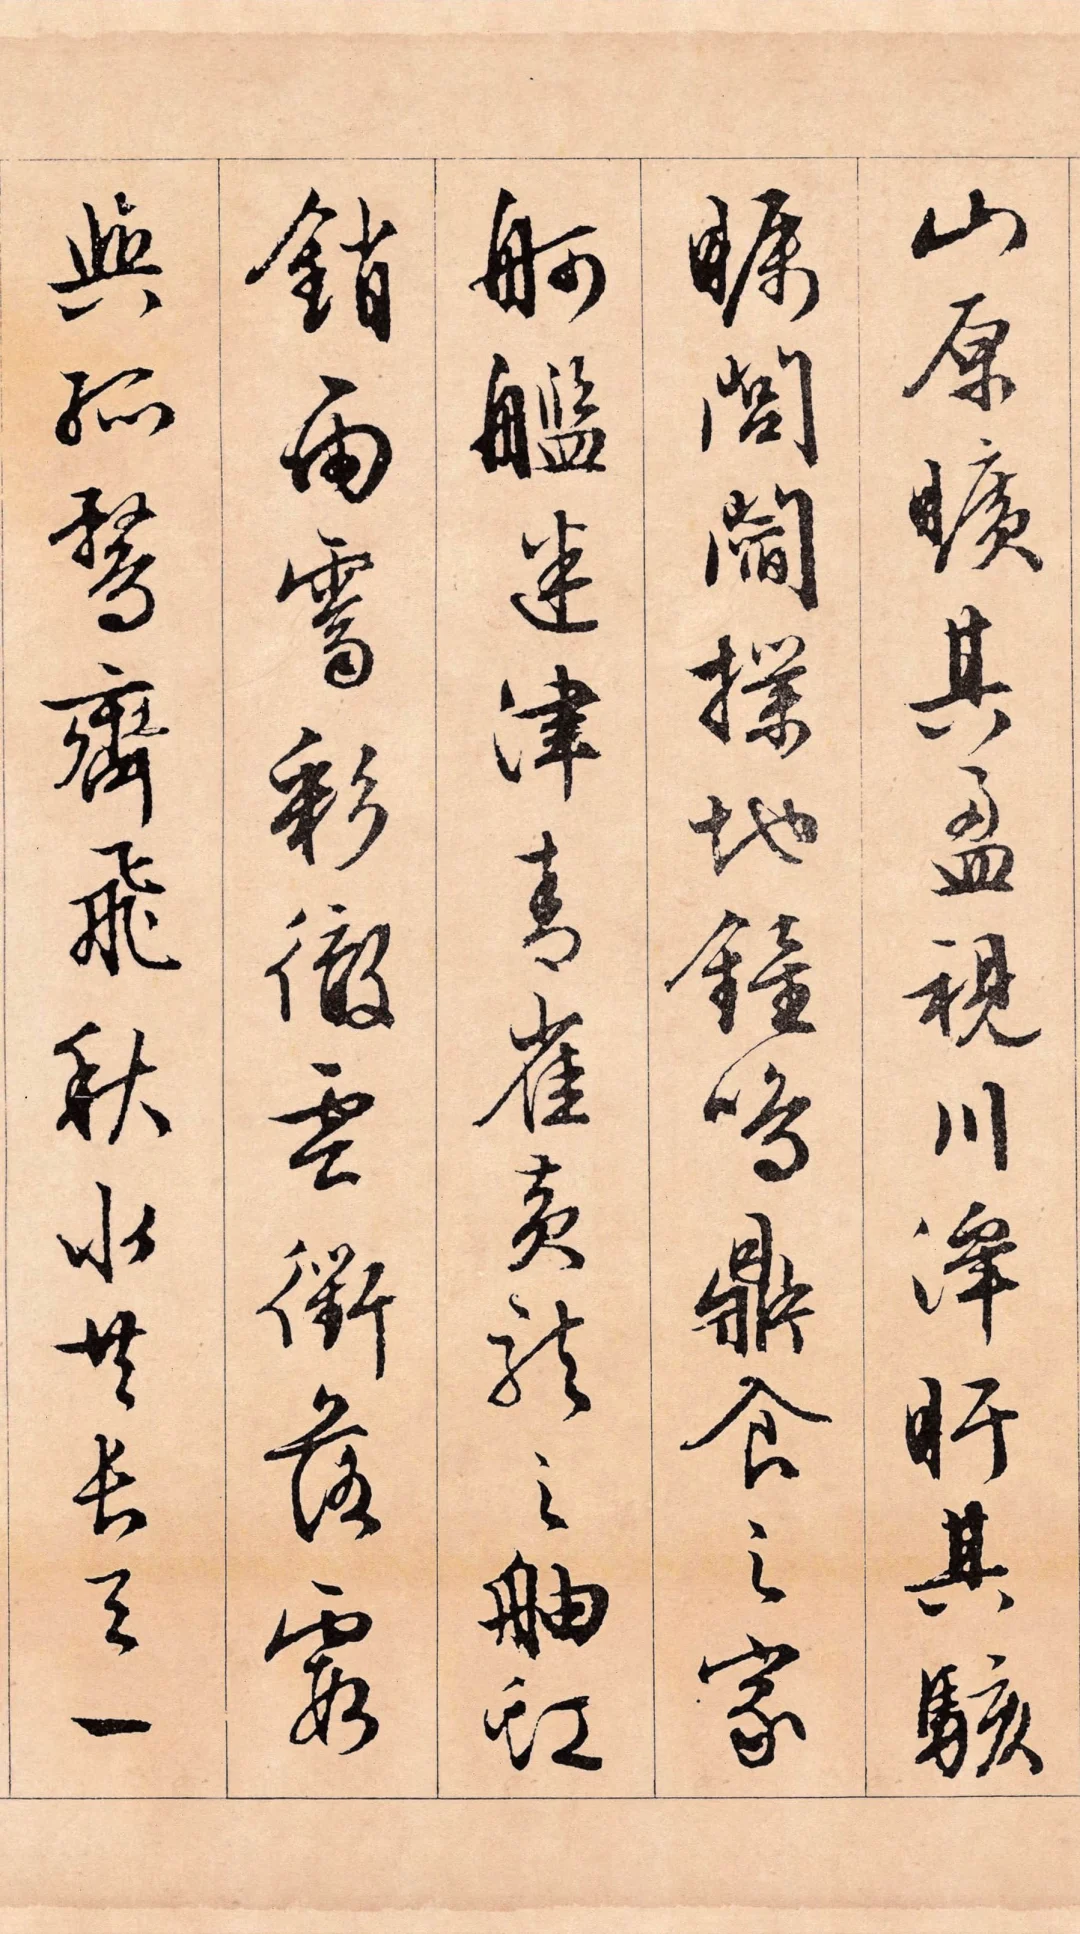 山原曠其盈視川澤盱其駭
矚閭閻撲地鐘鳴鼎食之家
舸艦迷津青雀黃龍之舳虹
銷雨霽彩徹雲衢落霞
與孤鶩齊飛秋水共長天一